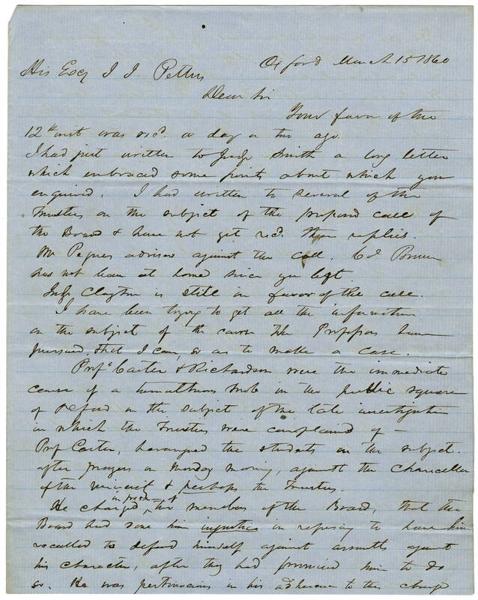 Oxford March 15 1860
His Excy J J Pettus
Dear Sir
Your favor of the
12th inst was recd. a day or two ago.
I had just written to Judge Smith a long letter
which embraced some points about which you
enquired. I had written to several of the
Trustees on the subject of the proposed call of
the Board & have not yet recd. their replies.
Mr Pegues advises against the call. Col Brown
has not been at home since you left
Judge Clayton is still in favor of the call.
I have been trying to get all the information
on the subject of the course the Professors have
pursued, that I can, so as to make a case.
Profs Carter & Richardson were the immediate
cause of a tumultuous mob in the public square
of Oxford on the subject of the late investigation
in which the Trustees were complained of
Prof Carter, harangued the students on the subject
after prayers on Monday morning, against the Chancellor
of the & perhaps the Trustees.
He charged, in presence of the members of the Board, that the
Board had done him injustice in refusing to have him
recalled to defend himself against assaults against
his character, after they had promised him to do
so. He was pertinacious in his adherence to this charge